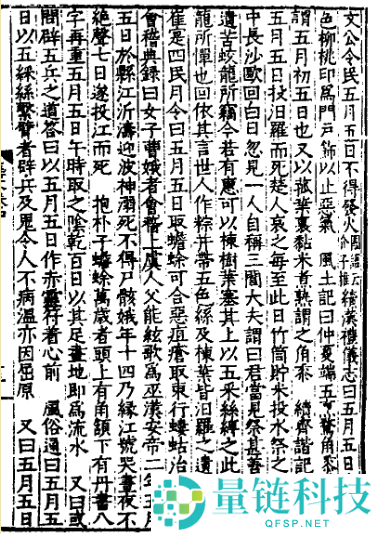 文公令民五月五日不得發火國語云介子推 續漢禮儀志曰五月五日
色柳桃印爲門戶飾以止惡氣 風土記曰仲夏端五烹鶩角黍
謂五月初五日也又以菰葉裹黏米煮熟謂之角黍 續齊諧記
五月五日投汨羅而死楚人哀之每至此日竹筒貯米投水祭之
中長沙歐回白日忽見一人自稱三閭大夫謂曰君當見祭甚善
遺苦蛟龍所竊今若有惠可以楝樹葉塞其上以五采絲縛之此
龍所憚也回依其言世人作粽并帶五色絲及楝葉皆汨羅之遺
崔寔四民月令曰五月五日取蟾蜍可合惡疽瘡取東行螻蛄治
會稽典錄曰女子曹娥者會稽上虞人父能絃歌爲巫漢安帝二年五月
五日於縣江泝濤迎波神溺死不得尸骸娥年十四乃緣江號哭晝夜不
絕聲七日遂投江而死 抱朴子蟾蜍萬歲者頭上有角頷下有丹書八
字再重五月五日午時取之陰乾百日以其足畫地即爲流水 又曰或
問辟五兵之道荅曰以五月五日作赤靈符著心前 風俗通曰五月五
日以五綵絲繫臂者辟兵及鬼令人不病溫亦因屈原 又曰五月五日
量链科技
QFSP.NET